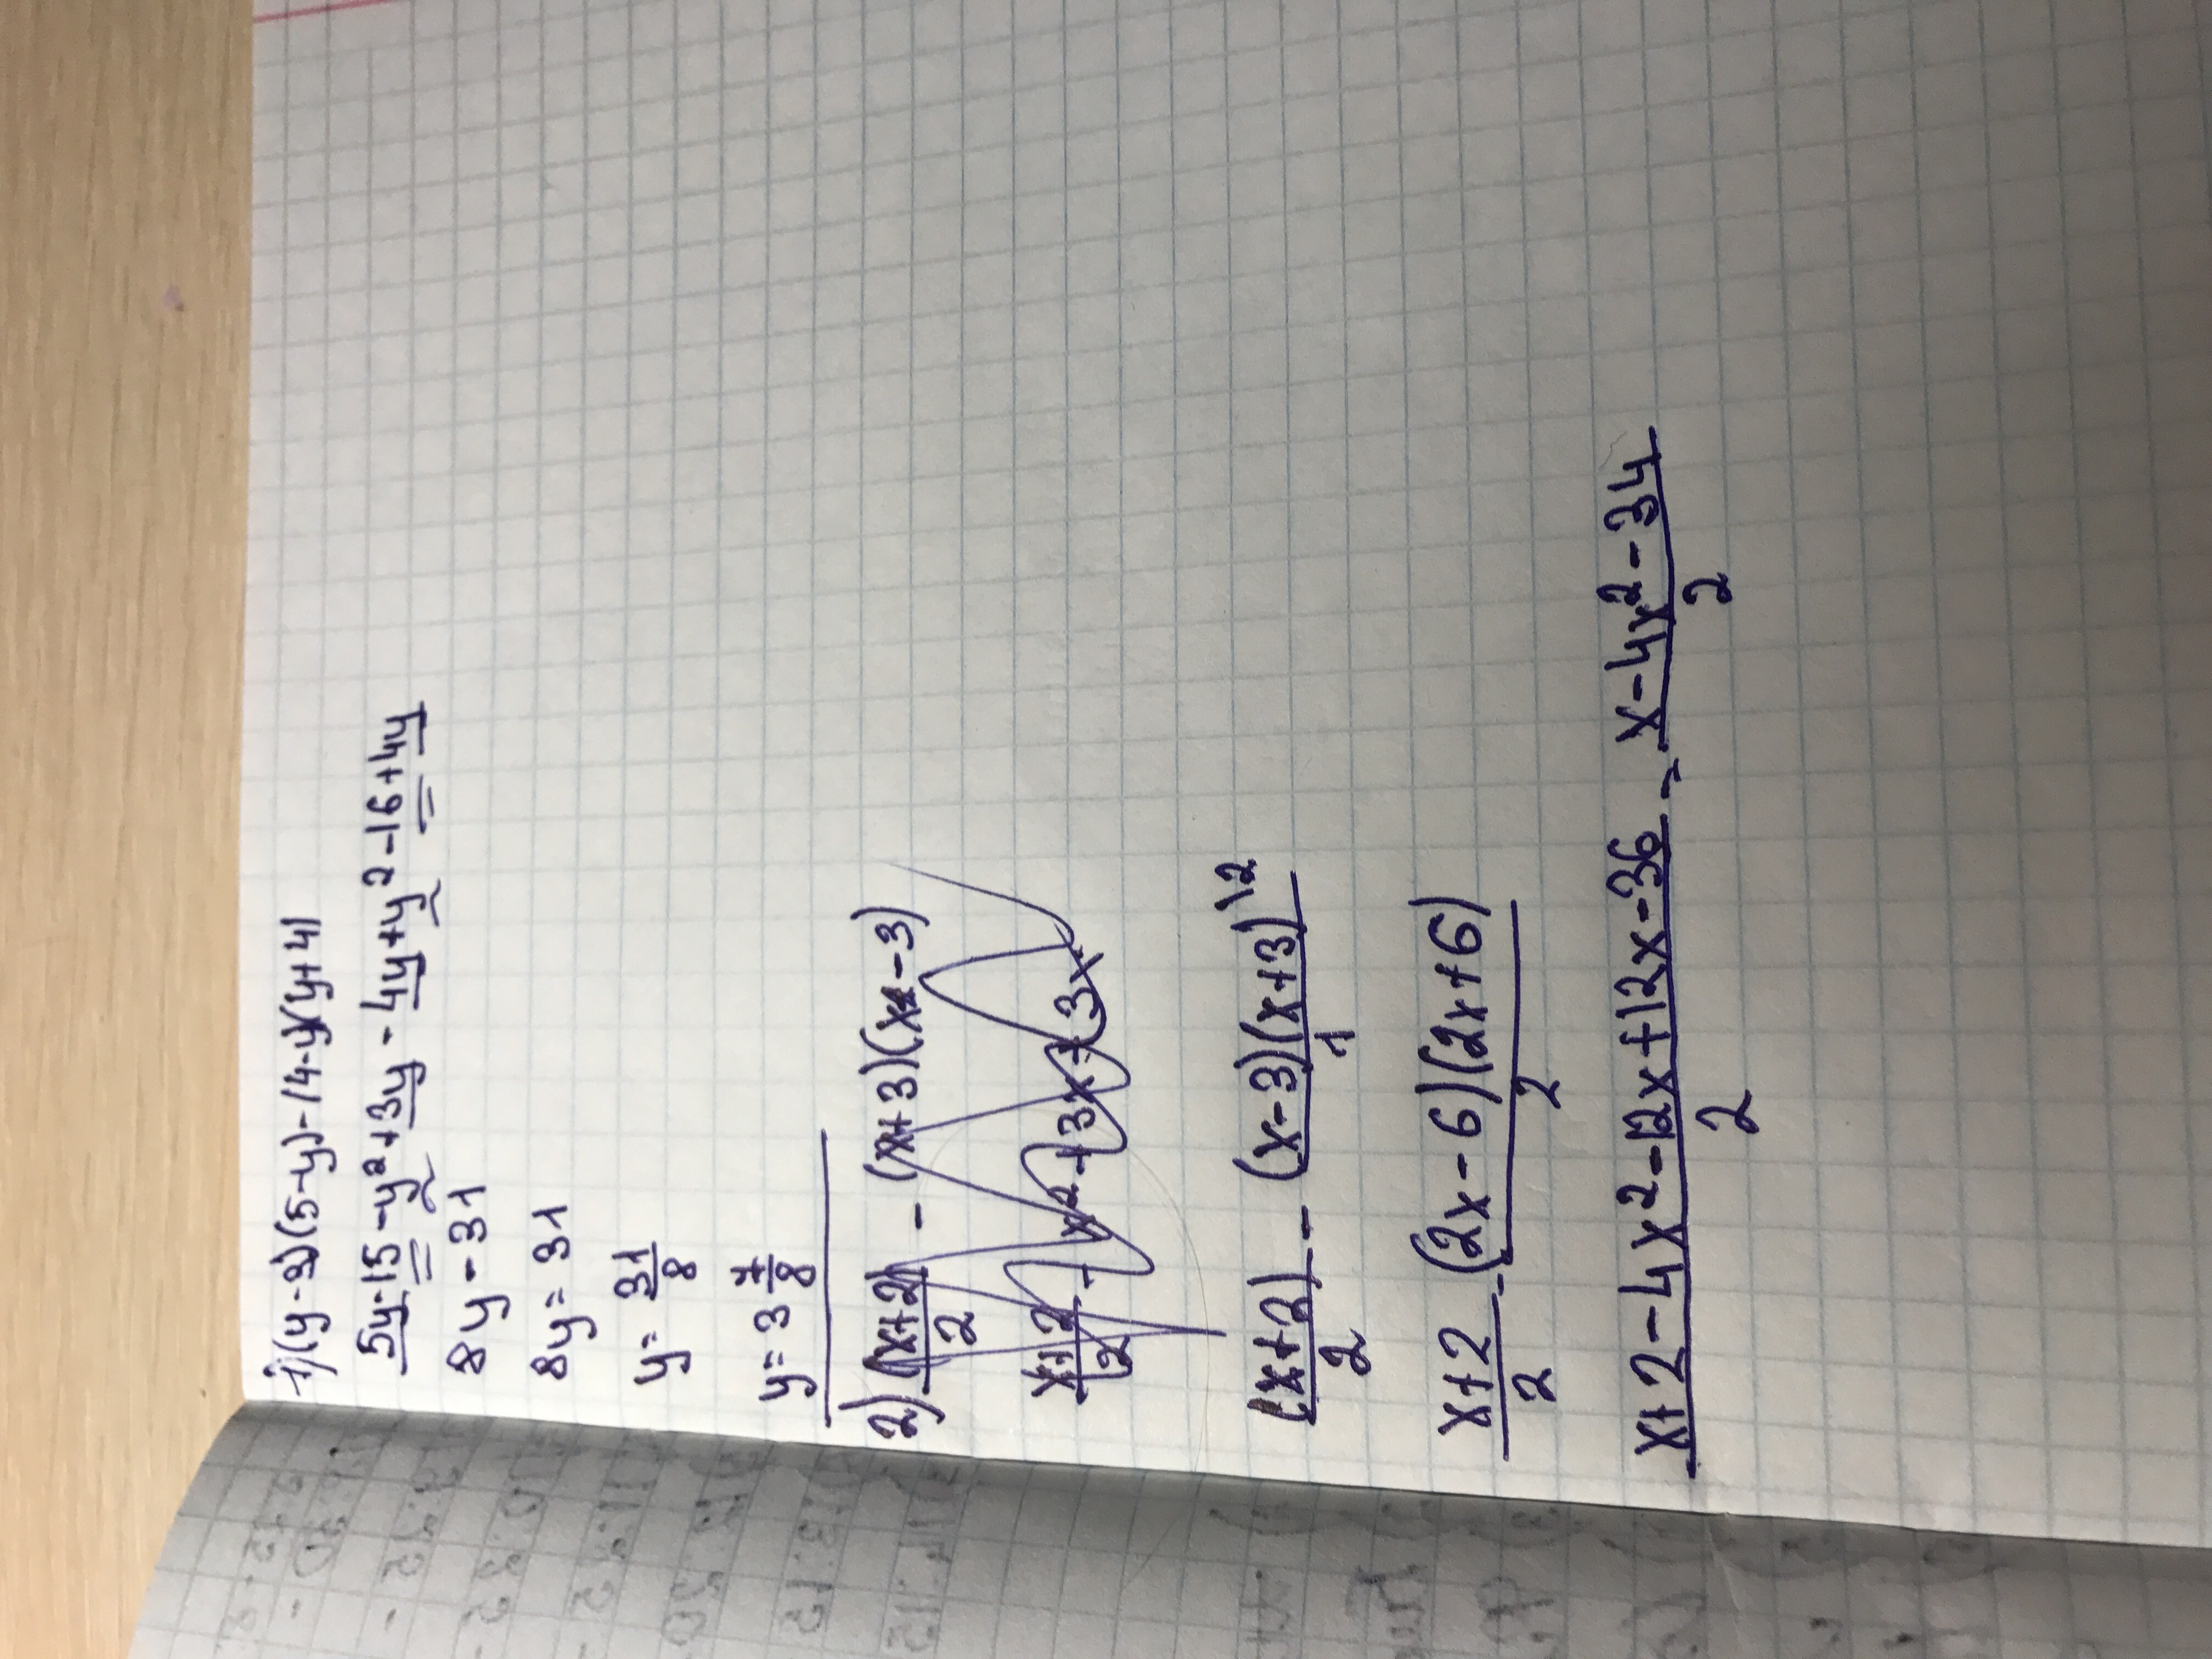 1) (y-3)(5-y)-(4-y)(y+4)
5y-15-y²+3y-4y+y²-16+4y
8y-31
8y=31
y=31/8
y=3 7/8
2) (x+2)/2 - (x+3)(x-3)
x+2/2 - x²+3x+3x
(x+2)/2 - (x-3)(x+3)\2/1
x+2/2 - (2x-6)(2x+6)/2
x+2-4x²-12x+12x-36/2 = x-4x²-34/2